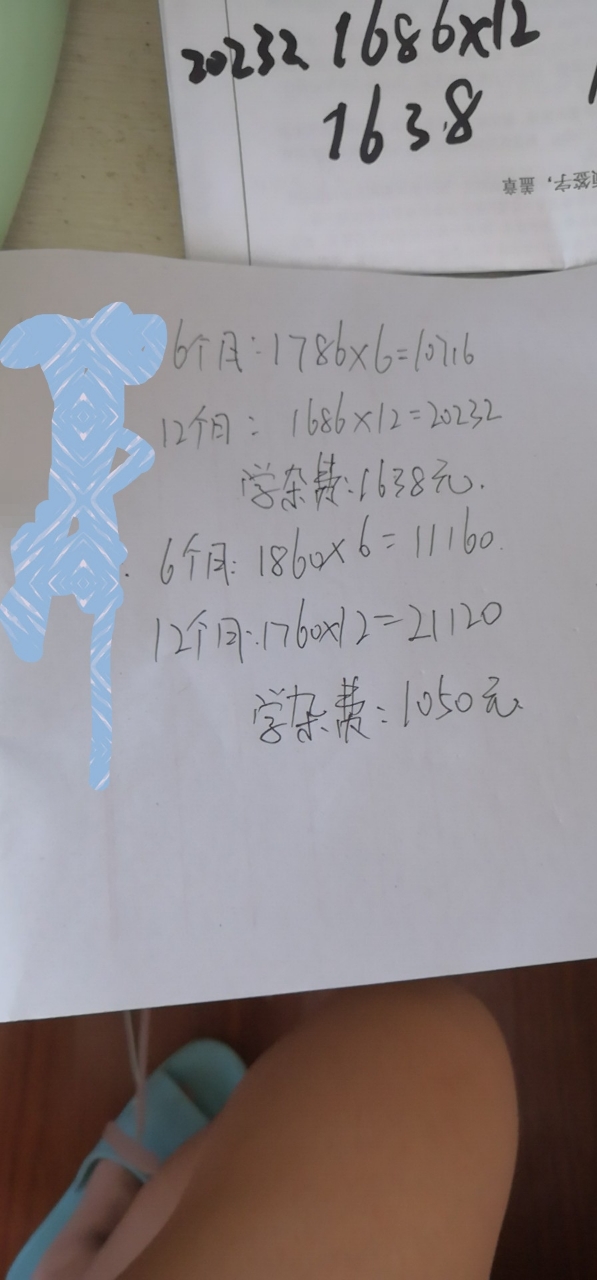 20232 1686x12
1638
签字，盖章
6个月：1786×6=10716
12个月：1686×12=20232
学杂费：1638元.
6个月：1860×6=11160.
12个月：1760×12=21120
学杂费：1050元.